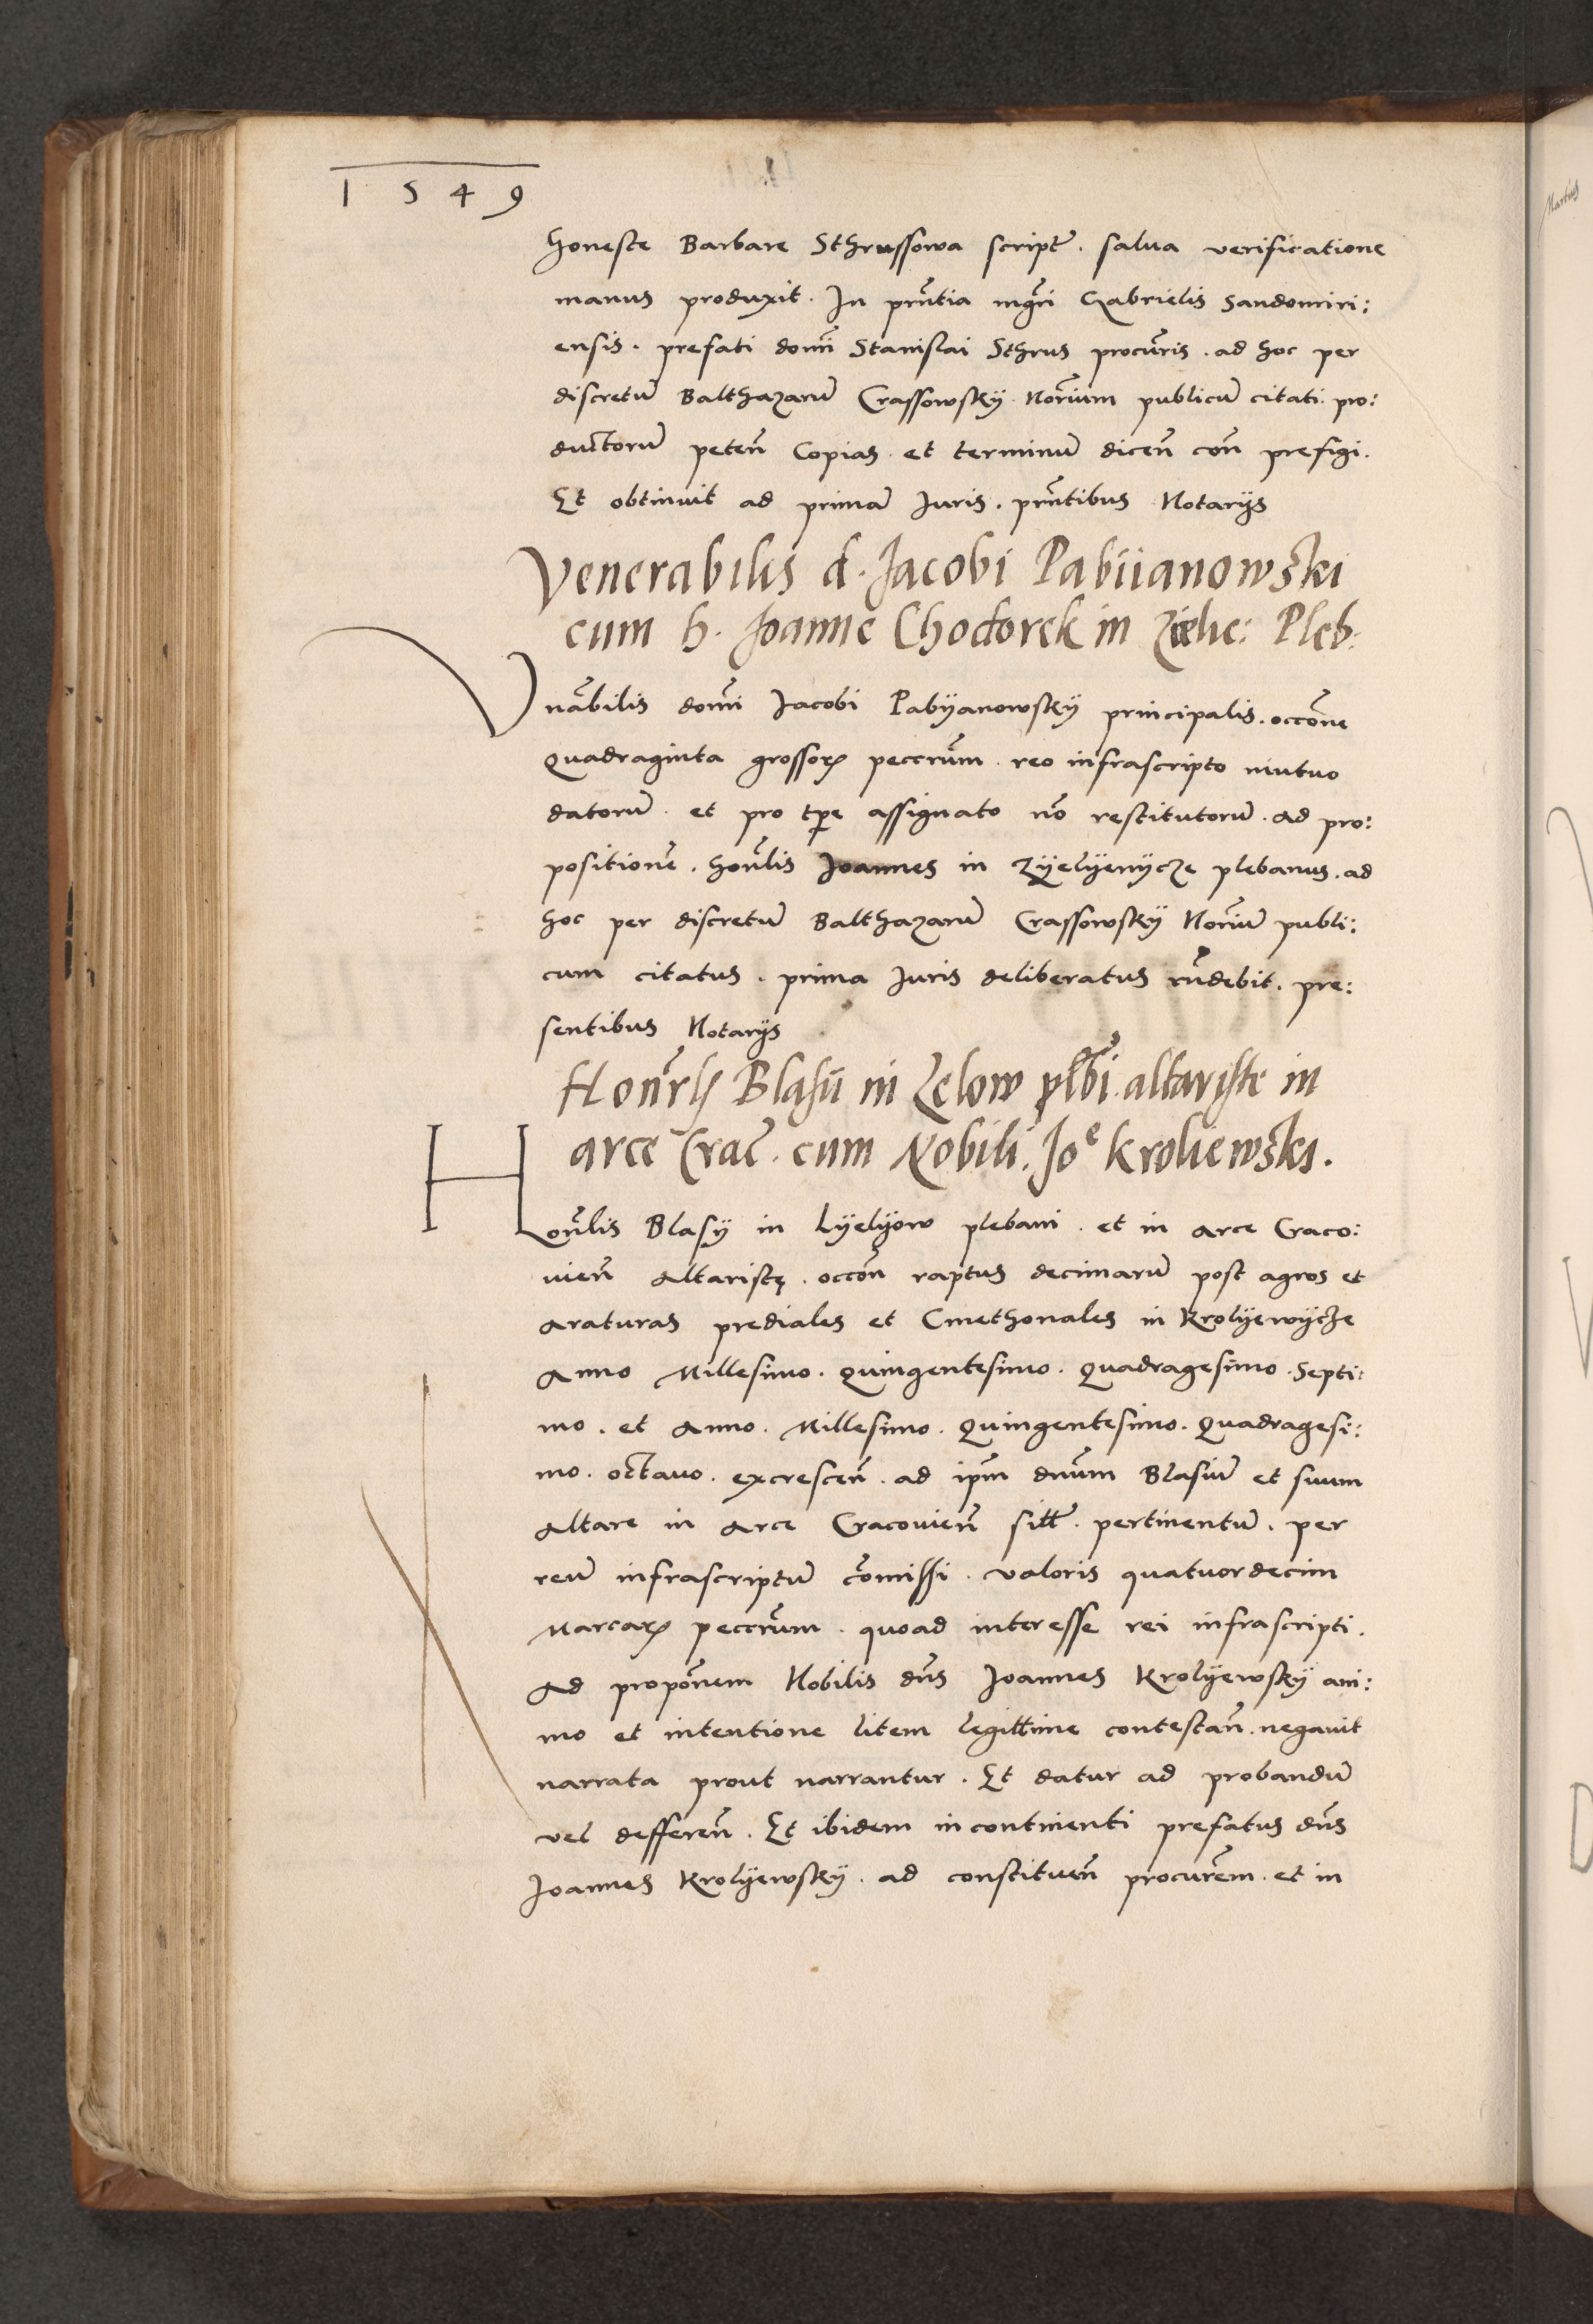 1549
honeste Barbare Sthrussowa script̃. salua verificatione
manus produxit. In pñtia mgr̃i Gabrielis Sandomiri:
ensis. prefati domĩ Stanislai Sthrus procur̃is. ad hoc per
discretũ Balthazarũ Crassowsky Nor̃ium publicũ citati. pro:
ductorũ peteñ Copias. et terminũ diceñ coñ prefigi.
Et obtinuit ad primã Iuris. pñtibus Notarijs
Venerabilis d. Jacobi Pabiianowski
cum h. Joanne Chodorek in Zielie: Pleb.
Vnãbilis domĩ Jacobi Pabyanowsky principalis. occõne
Quadraginta grossorꝝ peccũm. reo infrascripto mutuo
datorũ. et pro tp̃e assignato nõ restitutorũ. ad pro:
positionẽ. Honr̃lis Joannes in Zyelyenycze plebanus. ad
hoc per discretũ Balthazarũ Crassowsky Nor̃iũ publi:
cum citatus. prima Iuris deliberatus rñdebit. pre:
sentibus Notarijs
Honr̃lis Blasii in Lelow plb̃i. altariste in
arce Crac̃. cum Nobili. Joe Kroliewski.
Honr̃lis Blasij in Lyelyow plebani. et in arce Craco:
uieñ Altaristę. occoñ raptus decimarũ post agros et
araturas prediales et Cmethonales in Krolyewycze
Anno Millesimo. Quingentesimo. Quadragesimo. Septi:
mo. et Anno. Millesimo. Quingentesimo. Quadragesi:
mo. octauo. excresceñ. ad ip̃m dñum Blasiũ et suum
Altare in Arce Cracouieñ sitt̃. pertinentiũ. per
reũ infrascriptũ com̃issi. valoris quatuordecim
Marcarꝝ peccũm. quoad interesse rei infrascripti.
Ad propõnem Nobilis dñs Joannes Krolyewsky ani:
mo et intentione litem legittime contestañ. negauit
narrata prout narrantur. Et datur ad probandũ
vel defereñ. Et ibidem in continenti prefatus dñs
Joannes Krolyewsky. ad constitueñ procur̃em. et in